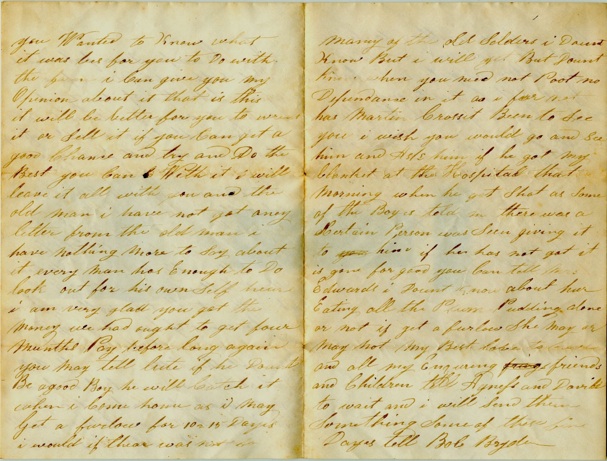 you Wanted to Know what
it was best for you to Do with
the farm i Can give you my
Opinion about it that is this
it will be better for you to
it or Sell it if you Can get a
good Chance and try and Do the
Best you Can With it i will
leave it all with you and the
old man i have not got any
letter from the old man i
have nothing more to Say about
it every man has Enough to Do
look out for his own Self here
i am very glad you got the
money we had ought to get four
Munths Pay before long again
you may tell if he Dount
Be a good Boy he will Catch it
when i Come home as i may
get a furlow for 10 or 15 Days
i would if thear was not so
many of the old Solders i Dount
Know But i will get But Dount
Know when you nied not Poot no
Dependance in it as i
has Martin Crossit Been to See
you i wish you would go and See
him and Ask him if he got my
at the Hospital that
Morning when he got Shot as Some
of the Boys told me there was a
Certain Person was Seen giving it
to him if he has not got it
is gone for good you Can tell
Edwards i Dount Know about her
Eating all the Plum Pudding alone
or not is i get a furlow She may or
may not my Best to
and all my Enquiring friends
and Children tell Agness and David
to wait and i will Send them
Something Some of these
Dayes tell Bob Hyde